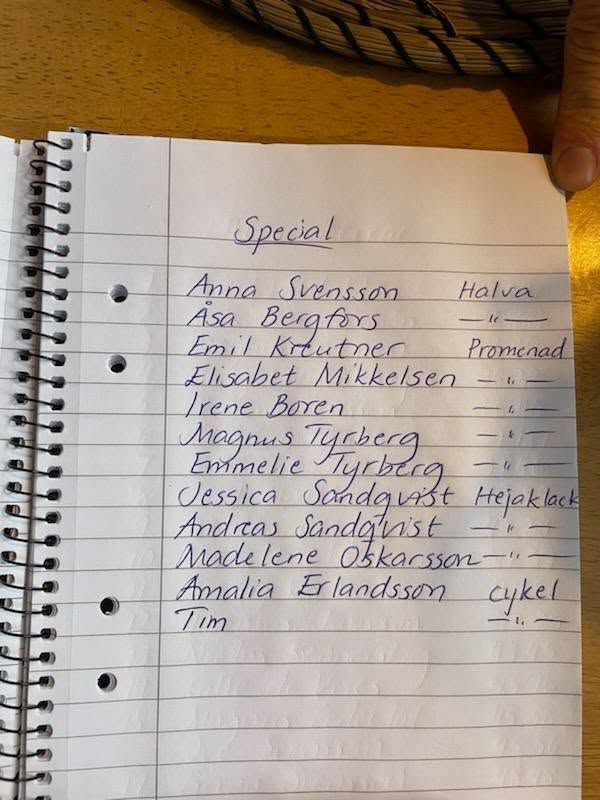 Special
Anna Svensson Halva
Åsa Bergfors —"—
Emil Kreutner Promenad
Elisabet Mikkelsen —"—
Irene Boren —"—
Magnus Tyrberg —"—
Emmelie Tyrberg —"—
Jessica Sandqvist Hejaklack
Andreas Sandqvist —"—
Madelene Oskarsson —"—
Amalia Erlandsson cykel
Tim —"—